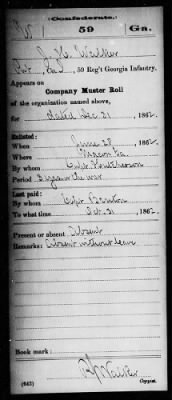 Confederate.
W 59 Ga.
J. H. Walker
Pvt, Co. 59 Reg't Georgia Infantry.
Appears on
Company Muster Roll
of the organization named above,
for dated Dec. 21, 1862.
Enlisted:
When June 28, 1862.
Where Macon Ga.
By whom Capt.
Period 3 years or the war
Last paid:
By whom Capt
To what time Oct. 31, 1862.
Present or absent Absent
Remarks: Absent without leave
Book mark:
(642) Copyist.